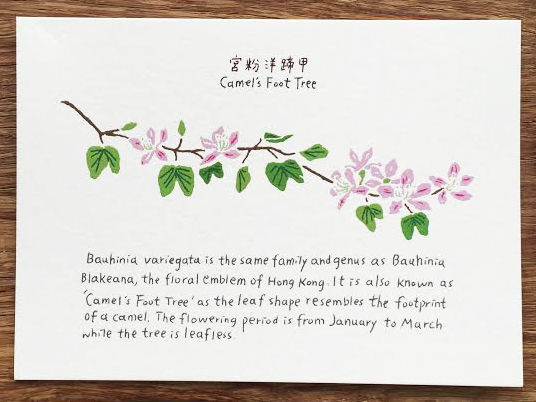 宮粉洋蹄甲
Camel's Foot Tree
Bauhinia variegata is the same family and genus as Bauhinia
Blakeana, the floral emblem of Hong Kong. It is also known as
'Camel's Foot Tree' as the leaf shape resembles the footprint
of a camel. The flowering period is from January to March
while the tree is leafless.